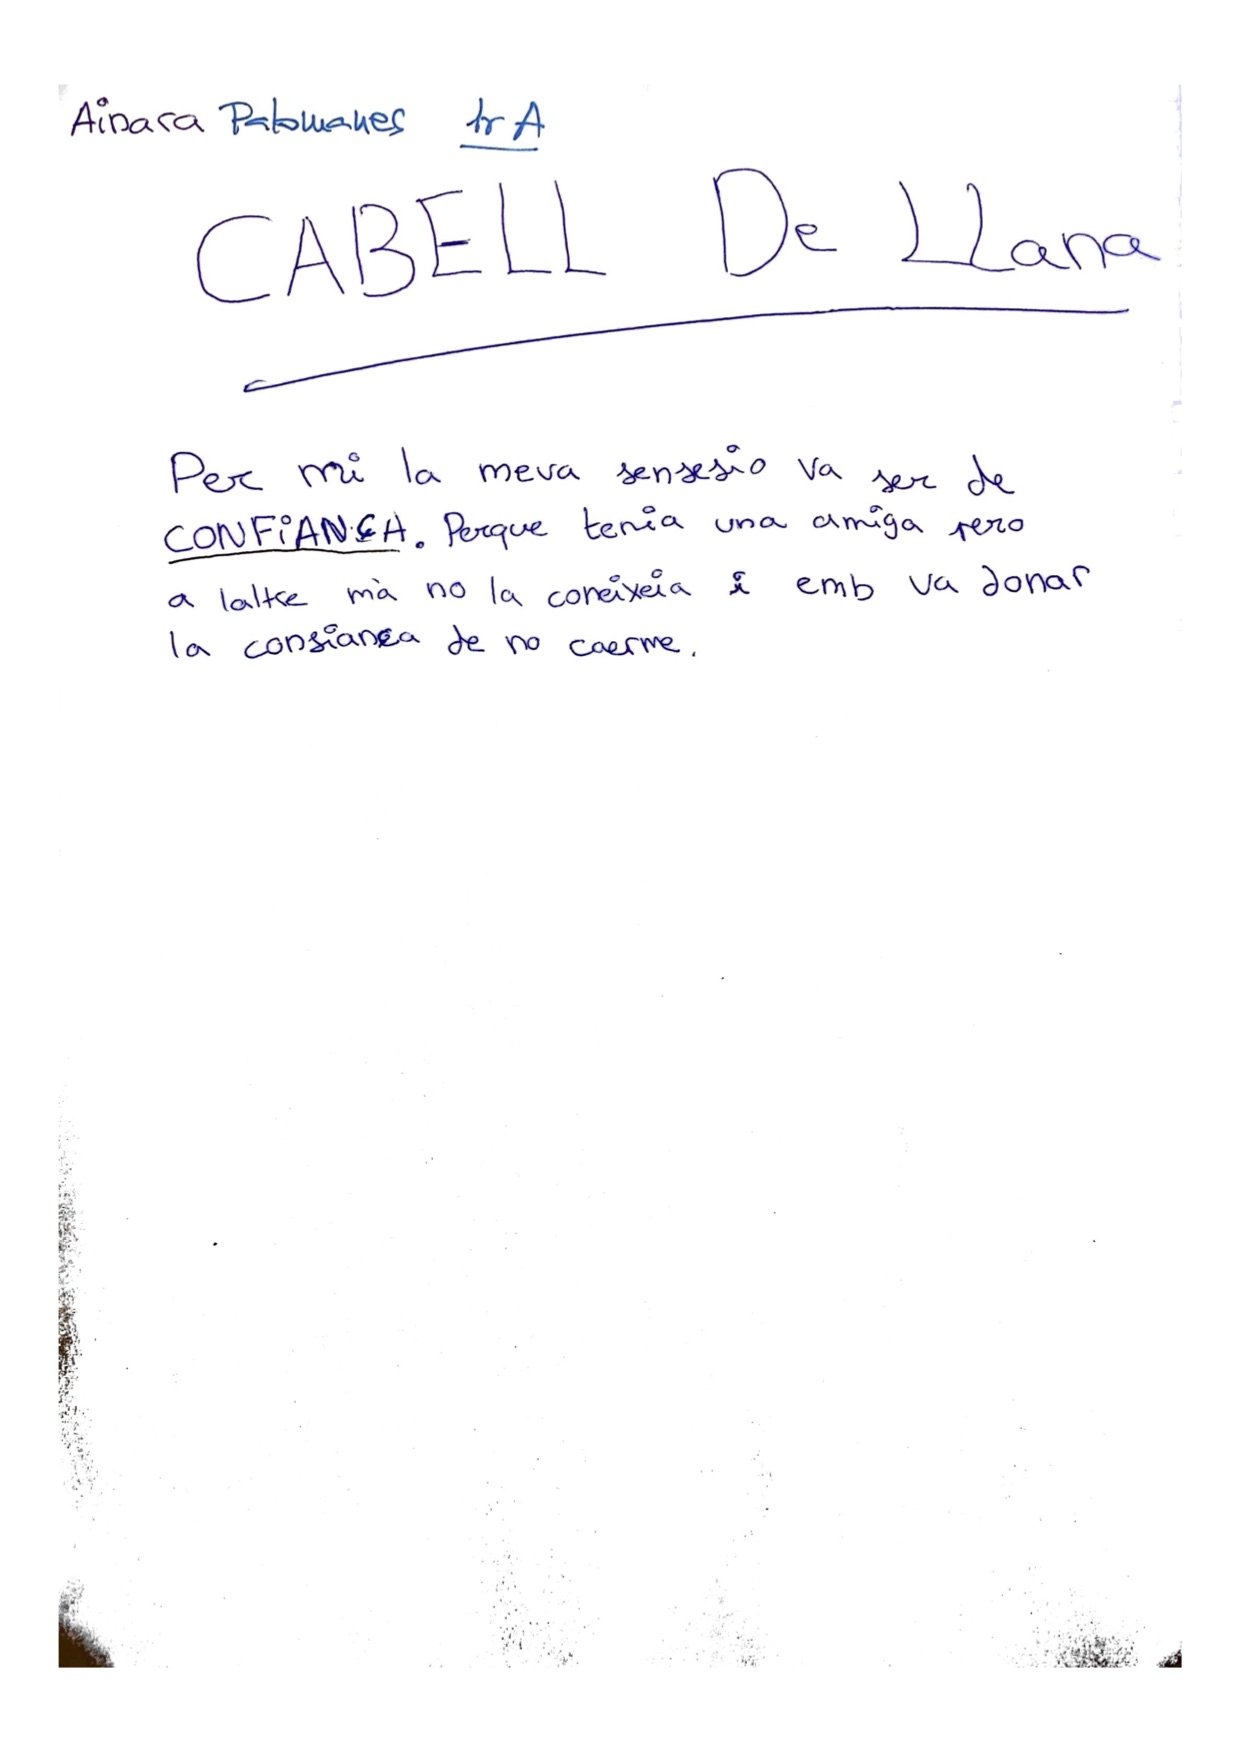 Ainara Palomares 1r A
CABELL De Llana
Per mi la meva sensesio va ser de
CONFiANÇA. Perque tenia una amiga pero
a laltre mà no la coneixeia i emb va donar
la confiança de no caerme.